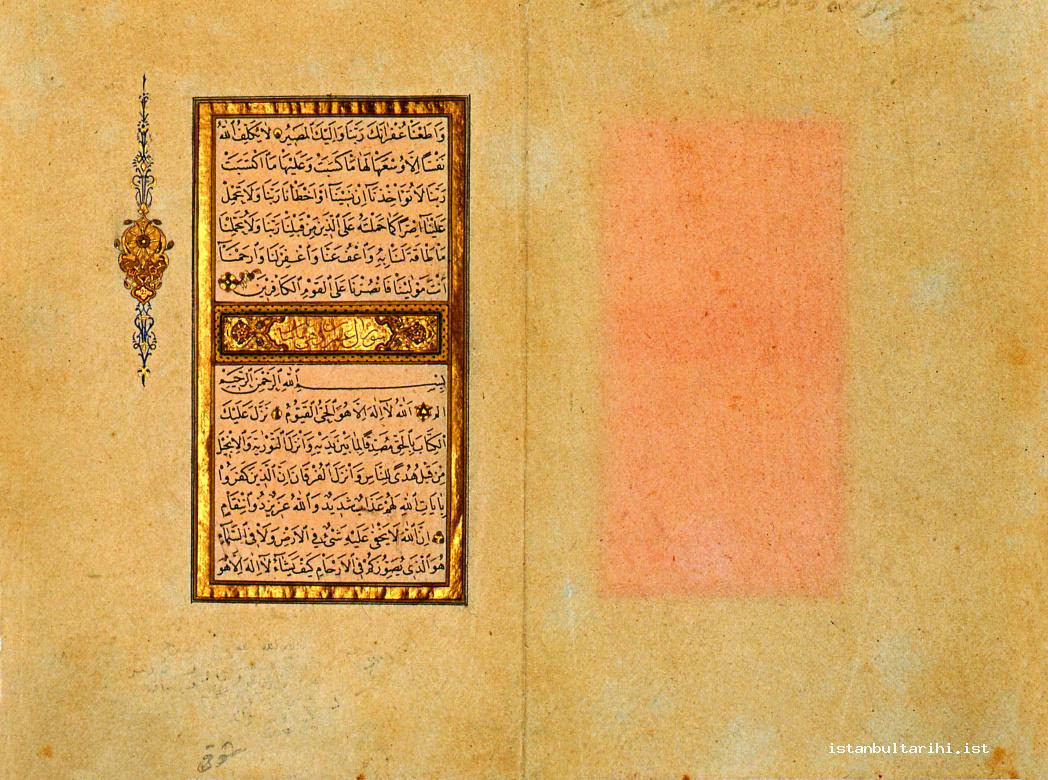 وَاَطَعْنَا غُفْرَانَكَ رَبَّنَا وَاِلَيْكَ الْمَصِيرُ لَا يُكَلِّفُ اللّٰهُ
نَفْسًا اِلَّا وُسْعَهَا لَهَا مَا كَسَبَتْ وَعَلَيْهَا مَا اكْتَسَبَتْ
رَبَّنَا لَا تُؤَاخِذْنَا اِنْ نَسِينَا اَوْ اَخْطَأْنَا رَبَّنَا وَلَا تَحْمِلْ
عَلَيْنَا اِصْرًا كَمَا حَمَلْتَهُ عَلَى الَّذِينَ مِنْ قَبْلِنَا رَبَّنَا وَلَا تُحَمِّلْنَا
مَا لَا طَاقَةَ لَنَا بِهِ وَاعْفُ عَنَّا وَاغْفِرْ لَنَا وَارْحَمْنَا
اَنْتَ مَوْلٰينَا فَانْصُرْنَا عَلَى الْقَوْمِ الْكَافِرِينَ
بِسْمِ اللّٰهِ الرَّحْمٰنِ الرَّحِيمِ
الم اَللّٰهُ لَا اِلٰهَ اِلَّا هُوَ الْحَىُّ الْقَيُّومُ نَزَّلَ عَلَيْكَ
الْكِتَابَ بِالْحَقِّ مُصَدِّقًا لِمَا بَيْنَ يَدَيْهِ وَاَنْزَلَ التَّوْرٰيةَ وَالْاِنْجِيلَ
مِنْ قَبْلُ هُدًى لِلنَّاسِ وَاَنْزَلَ الْفُرْقَانَ اِنَّ الَّذِينَ كَفَرُوا
بِاٰيَاتِ اللّٰهِ لَهُمْ عَذَابٌ شَدِيدٌ وَاللّٰهُ عَزِيزٌ ذُو انْتِقَامٍ
اِنَّ اللّٰهَ لَا يَخْفٰى عَلَيْهِ شَىْءٌ فِى الْاَرْضِ وَلَا فِى السَّمَاءِ
هُوَ الَّذِى يُصَوِّرُكُمْ فِى الْاَرْحَامِ كَيْفَ يَشَاءُ لَا اِلٰهَ اِلَّا هُوَ
istanbultarihi.ist